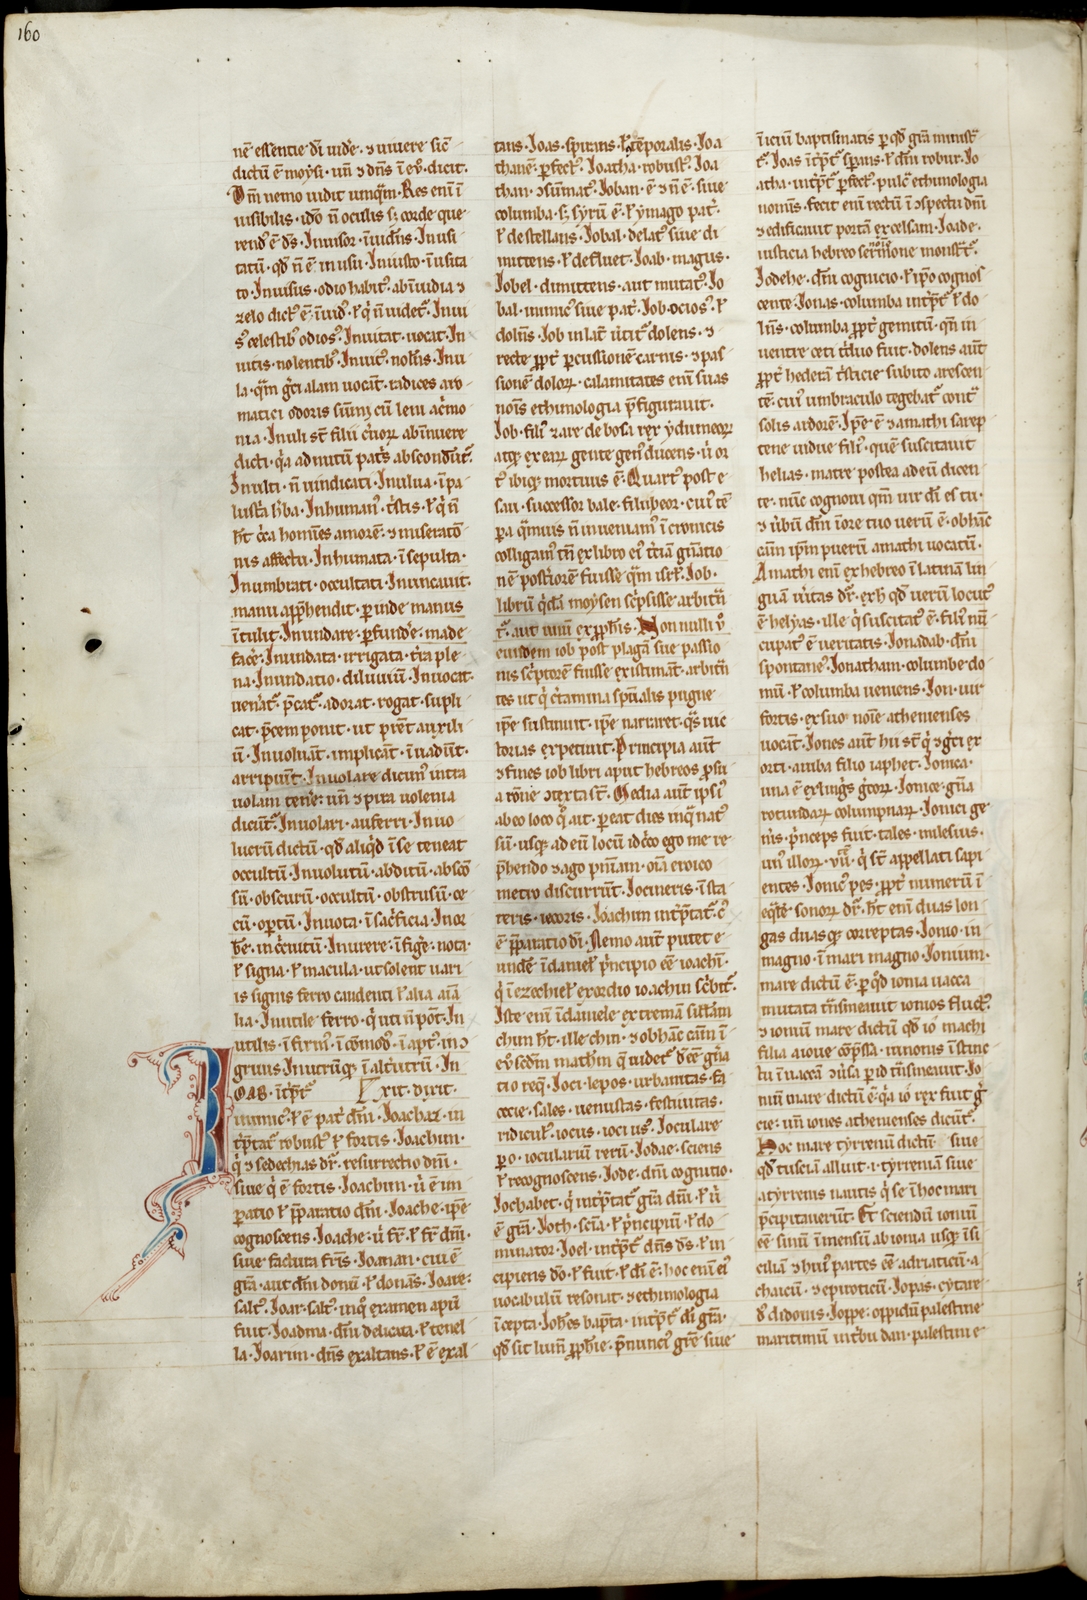 160
nē essentie dī uidē · ⁊ uiuere sic̄
dictū ē moysi · uñ ⁊ dn̄s ī eỹ · dicit ·
Dm̄ nemo uidit unq̄m · Res enī ī
uisibilis · idō n̄ oculis sꝫ corde que
rend᷒ ē dꝰs · Inuisor · īuidēs · Inusi
tatū · qđ n̄ ē inusu · Inuisto · īusita
to · Inuisus · odio habit᷒ · ab īuidia ⁊
zelo dict᷒ ē
s᷒ celestib᷒ odios᷒ · Inuitat · uocat · In
uitis · nolentib᷒ · Inuit᷒ · nolēs · Inu
la · q̄m ḡci alam uocāt · radices aro
matici odoris
nia · Inuli st̄ filii ceruoꝝ ab īnuere
dicti · q̇a ad nutū pat̄s abscondūt᷒ ·
Inulti · n̄ uindicati · Inulua · īpa
lust̄a h̄ba · Inhuman᷒ · t̄stis · ł q̇ n̄
h̄t c̄ca homīes amorē · ⁊ miseratō
nis affectū · Inhumata · īsepulta ·
Inumbrati · occultati · Inuncauit ·
manu app̄hendit · ꝑinde manus
ītulit · Inundare · ꝑfundē · made
facē · Inundata · irrigata · t̄ra ple
na · Inundatio · diluuiū · Inuocat ·
uenat᷒ · p̄cat᷒ · adorat · rogat · supli
cat · p̄cem ponit · ut p̄et auxili
ū · Inuoluāt · implicāt · īuadūt ·
arripiūt · Inuolare dicim᷒ intra
uolam tenē · uñ ⁊ pira uolema
dicūt᷒ · Inuolari · auferri · Inuo
lucrū dictū · qđ aliq̇d īse teneat
occultū · Inuolutū · abditū · abscō
sū · obscurū · occultū · obstrusū · ce
cū · optū · Inuota · īsac̄ficia · Inor
bē · incinctū · Inurere · īfigē · nota
ł signa · ł macula · ut solent uari
is signis ferro candenti ł alia aīa
lia · Inutile ferro · q̇ uti n̄ pōt · In
utilis · īfirm᷒ · īcōmod᷒ · īapt᷒ · inↄ
gruus · Inutrūqꝫ · īalt̄utrū · In
IOAB · īt̄p̄t᷒ Exit · duxit ·
inimic᷒ · ł ē pat̄ dn̄i · Ioachaz · in
t̄p̄tat᷒ robust᷒ ł fortis · Ioachim ·
q̇ ⁊ sedechias dr᷒ · resurrectio dn̄i ·
siue q̇ ē fortis · Ioachim · ū ē im
ꝑatio ł p̄paratio dn̄i · Ioache · ip̄e
cognoscens · Ioache · ū fr̄ · ł fr̄ dn̄i ·
siue factura fr̄is · Ioanan · cui ē
gr̄a · aut dn̄i donū · ł donās · Ioare ·
salt᷒ · Ioar · salt᷒ · inq᷒ examen apū
fuit · Ioadina · dn̄i delicata · ł tenel
la · Ioarim · dn̄s exaltans · ł ē exal
tans · Ioas · spirans · ł tēporalis · Ioa
thanē · ꝑfect᷒ · Ioatha · robust᷒ · Ioa
than · ↄsūmat᷒ · Ioban · ē ⁊ n̄ ē · siue
columba · sꝫ syrū ē · ł ymago pat̄ ·
ł de stellatis · Iobal · delat᷒ siue di
mittens · ł defluet · Ioab · magus ·
Iobel · dimittens · aut mutat᷒ · Io
bal · inimic᷒ siue pat̄ · Iob · ocios᷒ · ł
dolēs · Iob in lat̄ · ūtit᷒ dolens · ⁊
recte ꝓpt̄ ꝑcussionē carnis · ⁊ pas
sionē doloꝝ · calamitates enī suas
nōis ethimologia p̄figurauit ·
Iob · fili᷒ zare de bosra rex ydumeoꝝ
atqꝫ ex eaꝝ gente gen᷒ ducens · ū or
t᷒ ibiqꝫ mortuus ē · Quart᷒ post e
sau · successor bale · filii beor · cui᷒ tē
ꝑa q̄muis n̄ inueniam᷒ ī cronicis
colligam᷒ tn̄ ex libro ei᷒ t̄ciā gn̄atio
nē post̄iorē fuisse q̄m isrł · Iob ·
librū q̇dā moysen sc̄psisse arbitn̄
t᷒ · aut unū ex ꝓph̄is · Non nulli ū
euisdem iob post plagā sue passio
nis sc̄ptorē fuisse existimāt · arbitn̄
tes ut q̇ c̄tamina spūalis pugne
ip̄e sustinuit · ip̄e narraret · q̄s uic
torias expetiuit · Principia aūt
⁊ fines iob libri aput hebreos ꝓsa
a rōne ↄtexta st̄ · Media aūt ipsi᷒
ab eo loco q᷒ ait · ꝑeat dies inq̄ nat᷒
sū · usqꝫ ad eū locū idc̄o ego me re
p̄hendo ⁊ ago pn̄iam · oīa eroico
metro discurrūt · Iocineris · īsta
teris · iecoris · Ioachim int̄p̄tat᷒ c᷒
ē p̄paratio dī · Nemo aūt putet e
undē īdanieł p̄ncipio eē ioachī ·
q̇ ī ezechieł exordio ioachin sc̄bit᷒ ·
Iste enī īdaniele extremā sillam
chim h̄t · ille chin · ⁊ ob hāc cām ī
eỹ sc̄dm math̄m q̄ uidet᷒ d̄eē gn̄a
tio req̇ · Ioci · lepos · urbanitas · fa
cecie · sales · uenustas · festiuitas ·
ridicul᷒ · iocus · ioci us᷒ · Ioculare
ꝑo · ioculariū rerū · Iodae · sciens
ł recognoscens · Iode · dn̄i cognitio ·
Iochabet · q̇ int̄p̄tat᷒ gr̄a dn̄i · ł ū
ē gr̄a · Ioth · sc̄ia · ł p̄ncipiū · ł do
minator · Ioel · int̄p̄t᷒ dn̄s dꝰs · ł in
cipiens dō · ł fuit · ł dī ē · hoc enī ei᷒
uocabulū resonat · ⁊ ethimologia
īcepta · Ioh̄es bap̄ta · int̄p̄t᷒ dī gr̄a ·
qđ sit limē ꝓph̄ie · p̄nunci᷒ gr̄e siue
īiciū baptismatis ꝑ qđ gr̄a minist̄
t᷒ · Ioas īt̄p̄t᷒ spans · ł dn̄i robur · Io
atha · int̄p̄t᷒ ꝑfect᷒ · pulc̄ ethimologia
nominis · fecit enī rectū ī ↄspectu dn̄i
⁊ edificauit portā excelsam · Ioade ·
iusticia hebreo sermone monst̄t᷒ ·
Iodehe · dn̄i cognicio · ł ip̄o cognos
cente · Ionas · columba int̄p̄t᷒ ł do
lēs · columba ꝓpt̄ gemitū · qn̄ in
uentre ceti t̄duo fuit · dolens aūt
ꝓpt̄ hederā t̄sticie subito arescen
tē · cui᷒ umbraculo tegebat᷒ cont̄
solis ardorē · Ip̄e ē ⁊ amathi sarep
tene uidue fili᷒ · quē suscitauit
helias · matre postea ad eū dicen
te · nūc cognoui qm̄ uir dī es tu ·
⁊ ūbū dn̄i īore tuo uerū ē · ob hāc
cām ip̄m puerū amathi uocatū ·
Amathi enī ex hebreo īlatinā lin
guā ūitas dr᷒ · ex h̄ qđ uerū locut᷒
ē helyas · ille q̇ suscitat᷒ ē · fili᷒ nū
cupat᷒ ē ueritatis · Ionadab · dn̄i
spontane᷒ · Ionatham · columbe do
nū · ł columba ueniens · Ion · uir
fortis · ex suo nōie athenienses
uocāt · Iones aūt hii st̄ q̇ ⁊ ḡci ex
orti · auiba filio iaphet · Ionica ·
una ē ex linḡis ḡcoꝝ · Ionice · gn̄a
rotundaꝝ columpnaꝝ · Ionici ge
nis · p̄nceps fuit · tales · milesius ·
un᷒ illoꝝ · vii · q̇ st̄ appellati sapi
entes · Ionic᷒ pes · ꝓpt̄ numerū ī
eq̄lē · sonoꝝ dr᷒ · h̄t enī duas lon
gas duasqꝫ correptas · Ionio · in
magno · ī mari magno · Ionium ·
mare dictū ē · ꝑ q᷒d ionia uacca
mutata t̄nsmeauit ionios fluct᷒ ·
⁊ ioniū mare dictū qđ io machi
filia a ioue cōp̄ssa · iunonis īstinc
tu ī uaccā ūsa ꝑ id t̄nsmeauit · Io
niū mare dictū ē · q̇a io rex fuit ḡ
cie · uñ iones athenienses dicūt᷒ ·
Hoc mare tyrrenū dictū siue
qđ tusciā alluit · i · tyrreniā siue
a tyrrenis nautis q̇ se ī hoc mari
p̄cipitauerūt · Et sciendū ioniū
eē sinū īmensū ab ionia usqꝫ īsi
ciliā ⁊ hui᷒ partes eē adriaticū · a
chaicū · ⁊ epiroticū · Iopas · cytare
d᷒ didonis · Ioppe · oppidū palestine
maritimū int̄bu dan · palestine